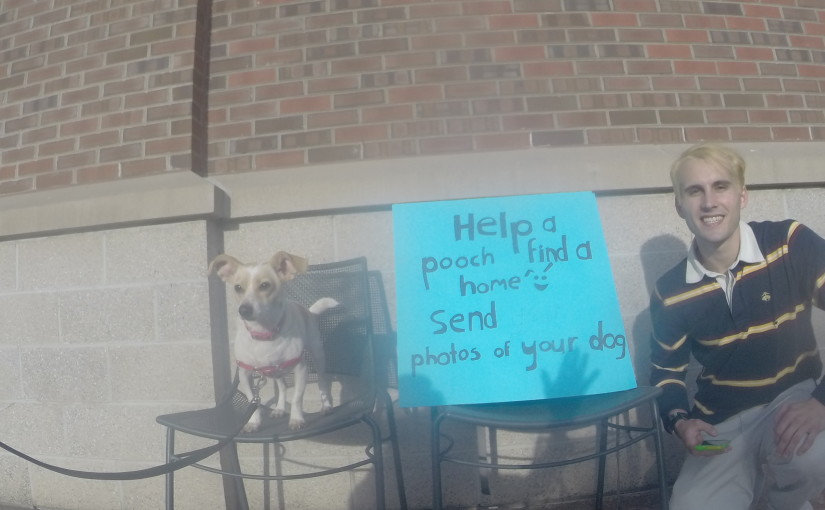 Help a
pooch find a
home
Send
photos of your dog